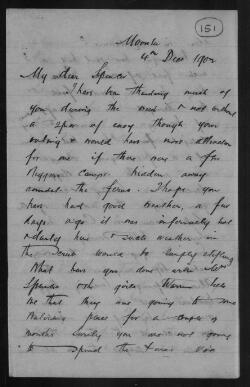 151
Moonta
4th Decr 1902
My dear Spencer
I have been thinking much of
you during the week &
a spur of envy though your
outing would have more attraction
for me if there were a few
camps hidden away
amidst the ferns. I hope you
have had good weather, a few
days ago it was infernally hot
& dusty here & such weather in
the Scrub would be simply stifling.
What have you done with Mrs
Spencer & the girls.
me that they were going to
place for a couple of
months surely you are not going
to spend the Xmas